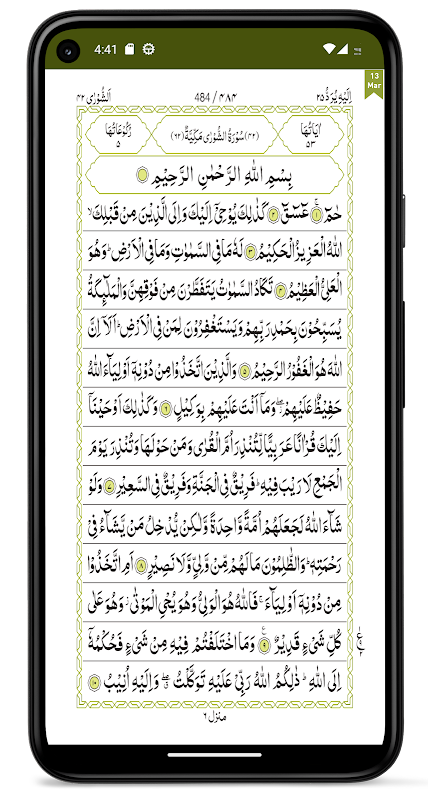 4:41
13
Mar
اِلَیْهِ یُرَدُّ ۲۵
484 / ۴۸۴
اَلشُّوْرٰی ۴۲
اٰیَاتُهَا ۵۳
(۴۲) سُوْرَةُ الشُّوْرٰی مَكِّیَّةٌ (۶۲)
رُكُوْعَاتُهَا ۵
بِسْمِ اللّٰهِ الرَّحْمٰنِ الرَّحِیْمِ
حٰمٓ ۱ عٓسٓقٓ ۲ كَذٰلِكَ یُوْحِیْۤ اِلَیْكَ وَاِلَی الَّذِیْنَ مِنْ قَبْلِكَ ۙ
اللّٰهُ الْعَزِیْزُ الْحَكِیْمُ ۳ لَهٗ مَا فِی السَّمٰوٰتِ وَمَا فِی الْاَرْضِ ؕ وَهُوَ
الْعَلِیُّ الْعَظِیْمُ ۴ تَكَادُ السَّمٰوٰتُ یَتَفَطَّرْنَ مِنْ فَوْقِهِنَّ وَالْمَلٰٓىِٕكَةُ
یُسَبِّحُوْنَ بِحَمْدِ رَبِّهِمْ وَیَسْتَغْفِرُوْنَ لِمَنْ فِی الْاَرْضِ ؕ اَلَاۤ اِنَّ
اللّٰهَ هُوَ الْغَفُوْرُ الرَّحِیْمُ ۵ وَالَّذِیْنَ اتَّخَذُوْا مِنْ دُوْنِهٖۤ اَوْلِیَآءَ اللّٰهُ
حَفِیْظٌ عَلَیْهِمْ ۖ وَمَاۤ اَنْتَ عَلَیْهِمْ بِوَكِیْلٍ ۶ وَكَذٰلِكَ اَوْحَیْنَاۤ
اِلَیْكَ قُرْاٰنًا عَرَبِیًّا لِّتُنْذِرَ اُمَّ الْقُرٰی وَمَنْ حَوْلَهَا وَتُنْذِرَ یَوْمَ
الْجَمْعِ لَا رَیْبَ فِیْهِ ؕ فَرِیْقٌ فِی الْجَنَّةِ وَفَرِیْقٌ فِی السَّعِیْرِ ۷ وَلَوْ
شَآءَ اللّٰهُ لَجَعَلَهُمْ اُمَّةً وَّاحِدَةً وَّلٰكِنْ یُّدْخِلُ مَنْ یَّشَآءُ فِیْ
رَحْمَتِهٖ ؕ وَالظّٰلِمُوْنَ مَا لَهُمْ مِّنْ وَّلِیٍّ وَّلَا نَصِیْرٍ ۸ اَمِ اتَّخَذُوْا
مِنْ دُوْنِهٖۤ اَوْلِیَآءَ ۚ فَاللّٰهُ هُوَ الْوَلِیُّ وَهُوَ یُحْیِ الْمَوْتٰی ؗ وَهُوَ عَلٰی
كُلِّ شَیْءٍ قَدِیْرٌ ۹ وَمَا اخْتَلَفْتُمْ فِیْهِ مِنْ شَیْءٍ فَحُكْمُهٗۤ
اِلَی اللّٰهِ ؕ ذٰلِكُمُ اللّٰهُ رَبِّیْ عَلَیْهِ تَوَكَّلْتُ ۖ وَاِلَیْهِ اُنِیْبُ ۱۰
منزل ۶